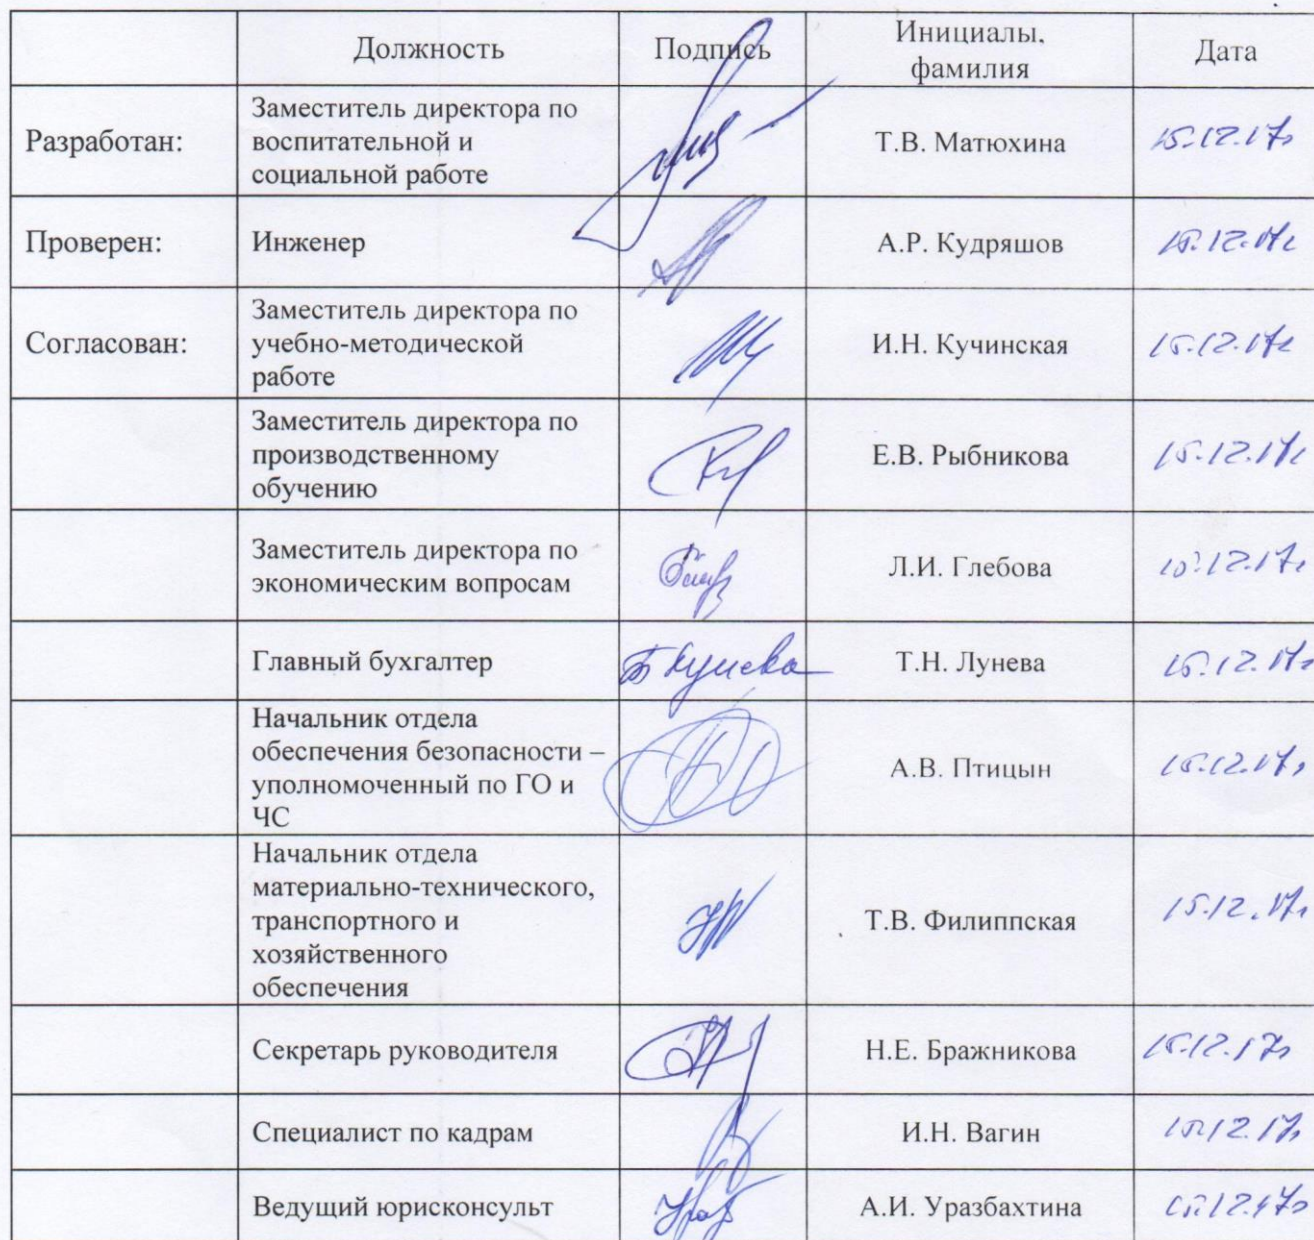 Должность Подпись Инициалы, фамилия Дата
Разработан: Заместитель директора по
воспитательной и
социальной работе
Т.В. Матюхина 15.12.17г
Проверен: Инженер А.Р. Кудряшов 15.12.17г
Согласован: Заместитель директора по
учебно-методической
работе
И.Н. Кучинская 15.12.17г
Заместитель директора по
производственному
обучению
Е.В. Рыбникова 15.12.17г
Заместитель директора по
экономическим вопросам
Л.И. Глебова 15.12.17г
Главный бухгалтер Т.Н. Лунева 15.12.17г
Начальник отдела
обеспечения безопасности –
уполномоченный по ГО и
ЧС
А.В. Птицын 15.12.17г
Начальник отдела
материально-технического,
транспортного и
хозяйственного
обеспечения
Т.В. Филиппская 15.12.17г
Секретарь руководителя Н.Е. Бражникова 15.12.17г
Специалист по кадрам И.Н. Вагин 15.12.17г
Ведущий юрисконсульт А.И. Уразбахтина 15.12.17г